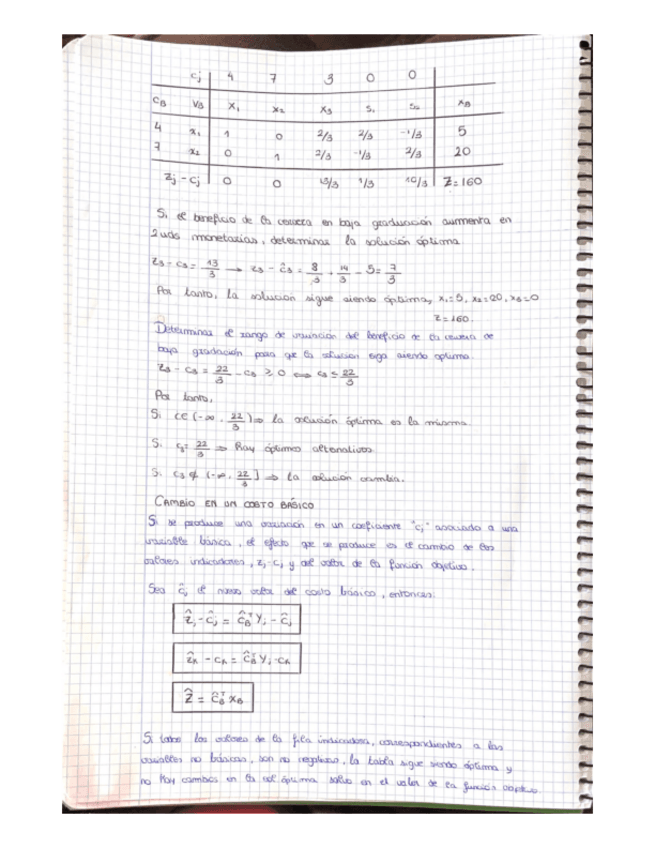 cj 4 7 3 0 0
CB VB x₁ x₂ x₃ s₁ s₂ xB
4 x₁ 1 0 2/3 2/3 -1/3 5
7 x₂ 0 1 2/3 -1/3 2/3 20
zj - cj 0 0 13/3 1/3 10/3 Z=160
Si el beneficio de la cerveza en baja graduación aumenta en
2 uds monetarias, determinar la solución óptima.
z₃ - c₃ = 13/3 → z₃ - ĉ₃ = 8/3 + 14/3 - 5 = 7/3
Por tanto, la solución sigue siendo óptima, x₁=5, x₂=20, x₃=0
Z=160.
Determinar el rango de variación del beneficio de la cerveza de
baja graduación para que la solución siga siendo óptima.
z₃ - c₃ = 22/3 - c₃ ≥ 0 ⟺ c₃ ≤ 22/3
Por tanto,
Si c∈(-∞, 22/3) ⇒ la solución óptima es la misma.
Si c₃ = 22/3 ⇒ Hay óptimos alternativos.
Si c₃ ∉ (-∞, 22/3] ⇒ la solución cambia.
CAMBIO EN UN COSTO BÁSICO
Si se produce una variación en un coeficiente "cj" asociado a una
variable básica, el efecto que se produce es el cambio de los
valores indicadores, zj-cj y del valor de la función objetivo.
Sea ĉj el nuevo valor del costo básico, entonces:
ẑj - ĉj = ĉBᵀ Yj - ĉj
ẑk - ck = ĉBᵀ Yj - ck
Ẑ = ĉBᵀ xB
Si todos los valores de la fila indicadora, correspondientes a las
variables no básicas, son no negativos, la tabla sigue siendo óptima y
no hay cambios en la sol óptima salvo en el valor de la función objetivo